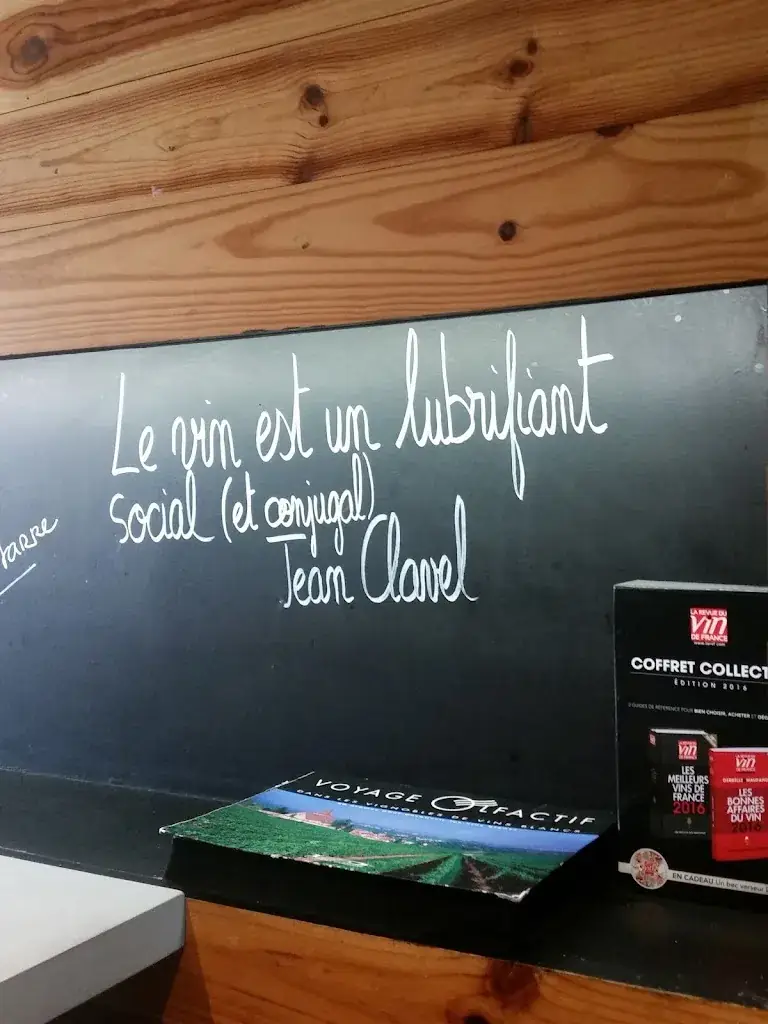 Le vin est un lubrifiant
social (et conjugal)
Jean Clavel
LA REVUE DU
vin
DE FRANCE
COFFRET COLLECT
ÉDITION 2016
2 GUIDES DE RÉFÉRENCE POUR BIEN CHOISIR, ACHETER ET DÉG
vin
LES
MEILLEURS
VINS DE
FRANCE
2016
vin
LES
BONNES
AFFAIRES
DU VIN
2016
EN CADEAU Un bec verseur
VOYAGE OLFACTIF
DANS LES VIGNOBLES DE VINS BLANCS